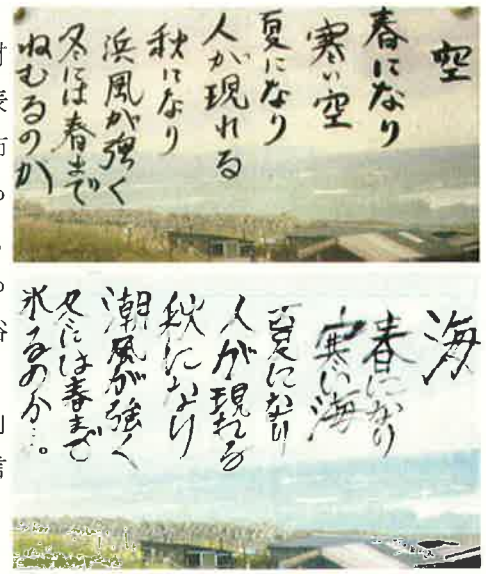 空
春になり
寒い空
夏になり
人が現れる
秋になり
浜風が強く
冬には春まで
ねむるのか
海
春になり
寒い海
夏になり
人が現れる
秋になり
潮風が強く
冬には春まで
氷るのか…。